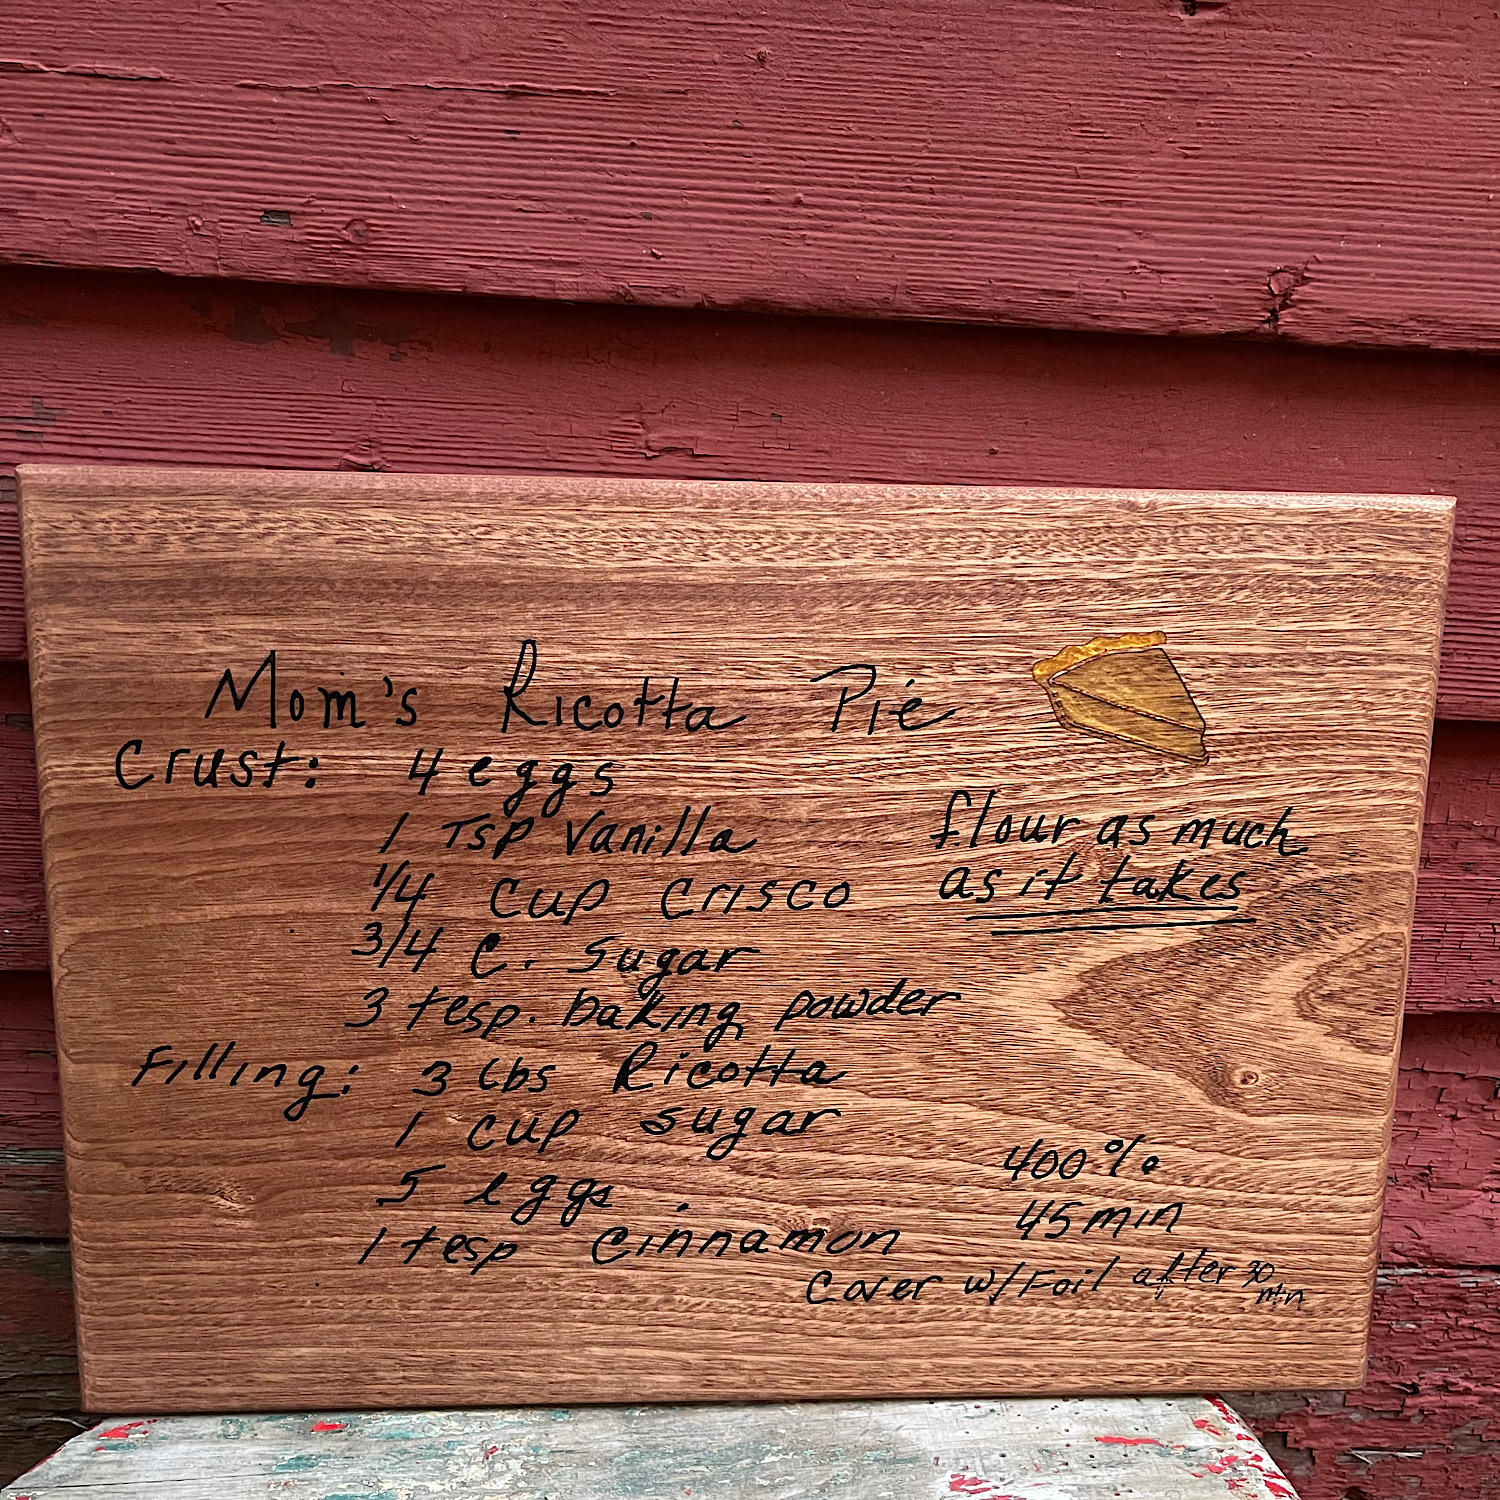 Mom's Ricotta Pie
Crust: 4 eggs
1 Tsp Vanilla
1/4 cup Crisco
3/4 C. Sugar
3 tesp. baking powder
flour as much
as it takes
Filling: 3 lbs Ricotta
1 cup sugar
5 eggs
1 tesp Cinnamon
400%
45 min
Cover w/Foil after 30
min